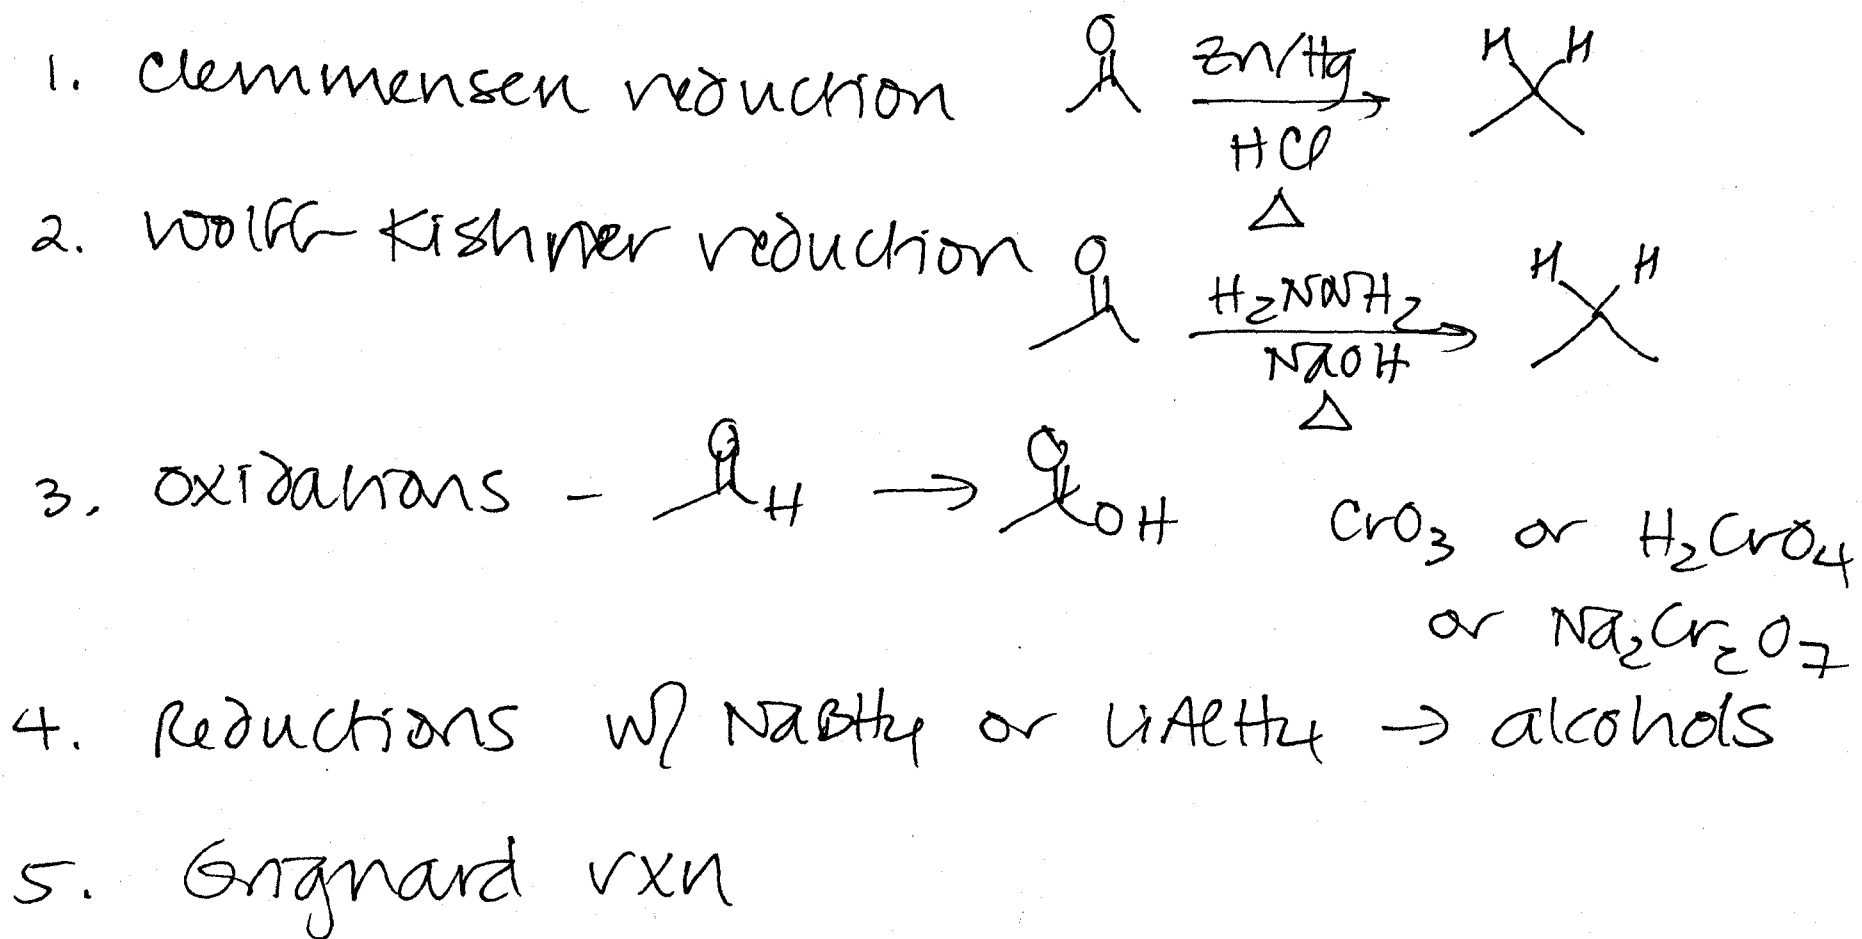 1. Clemmensen reduction O Zn/Hg H H
HCl
Δ
2. Wolff-Kishner reduction O H₂NNH₂ H H
NaOH
Δ
3. oxidations - O H → O OH CrO₃ or H₂CrO₄
or Na₂Cr₂O₇
4. Reductions w/ NaBH₄ or LiAlH₄ → alcohols
5. Grignard rxn